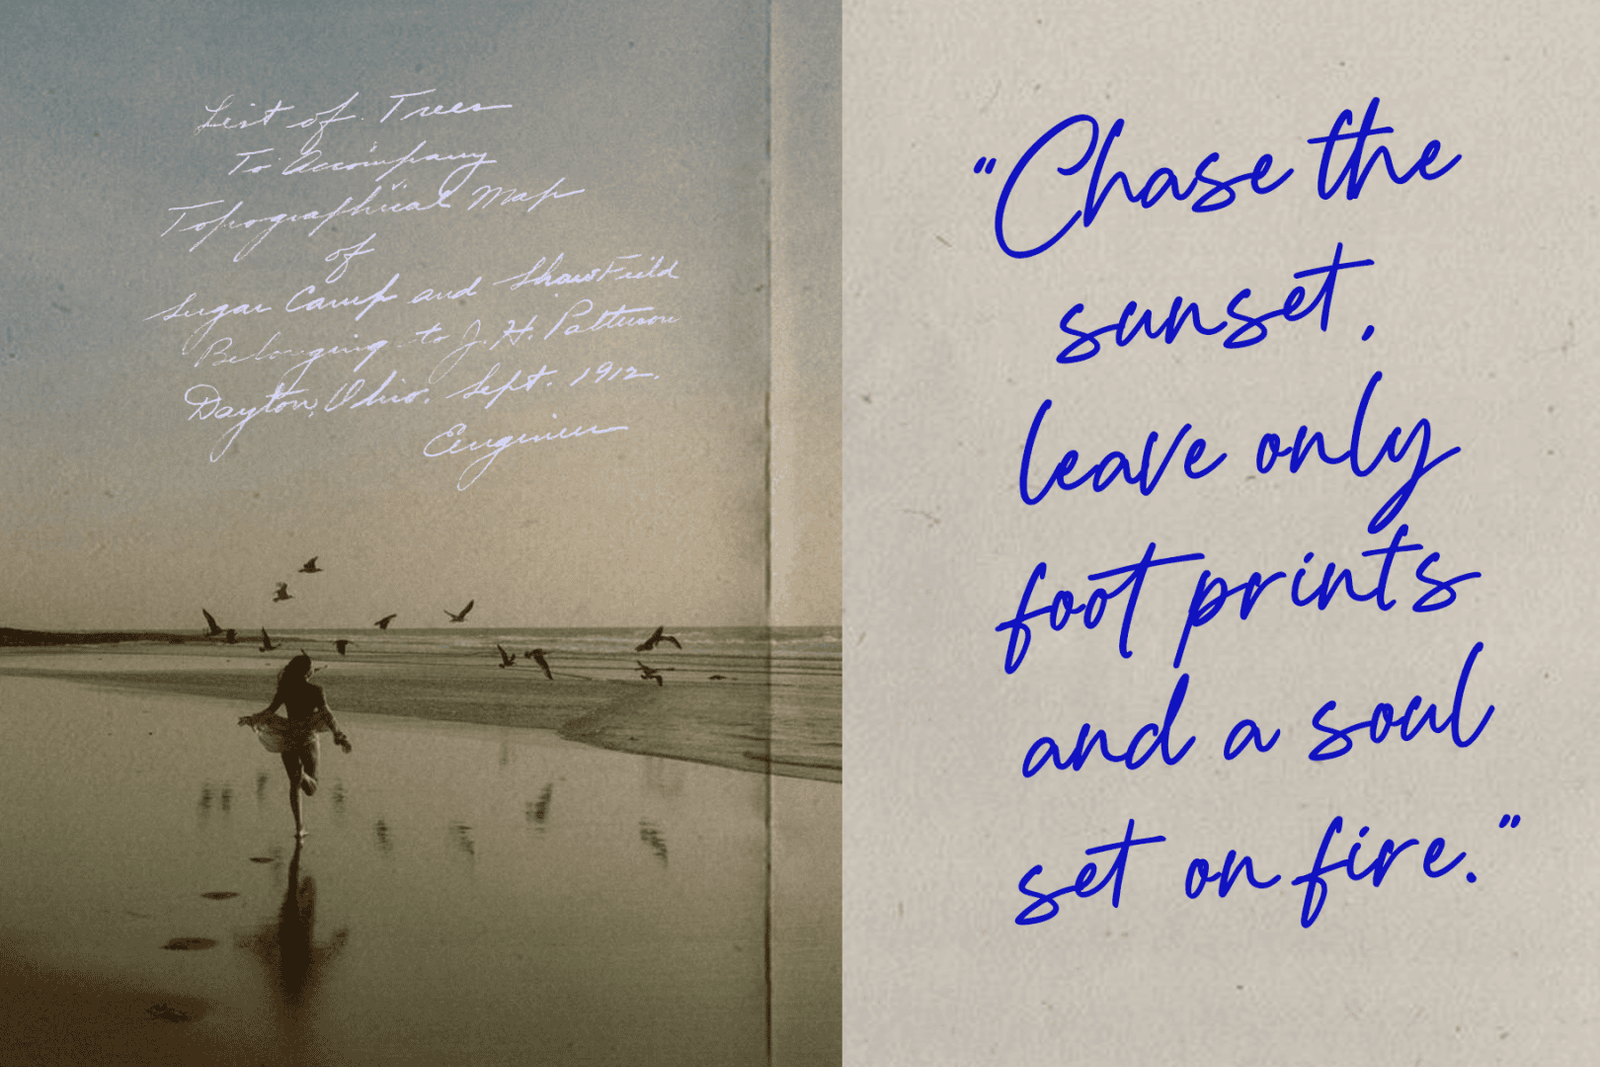 List of Trees
To Accompany
Topographical Map
of
Sugar Camp and Shaw Field
Belonging to J. H. Patterson
Dayton, Ohio. Sept. 1912.
Engineer
“Chase the
sunset,
leave only
foot prints
and a soul
set on fire.”